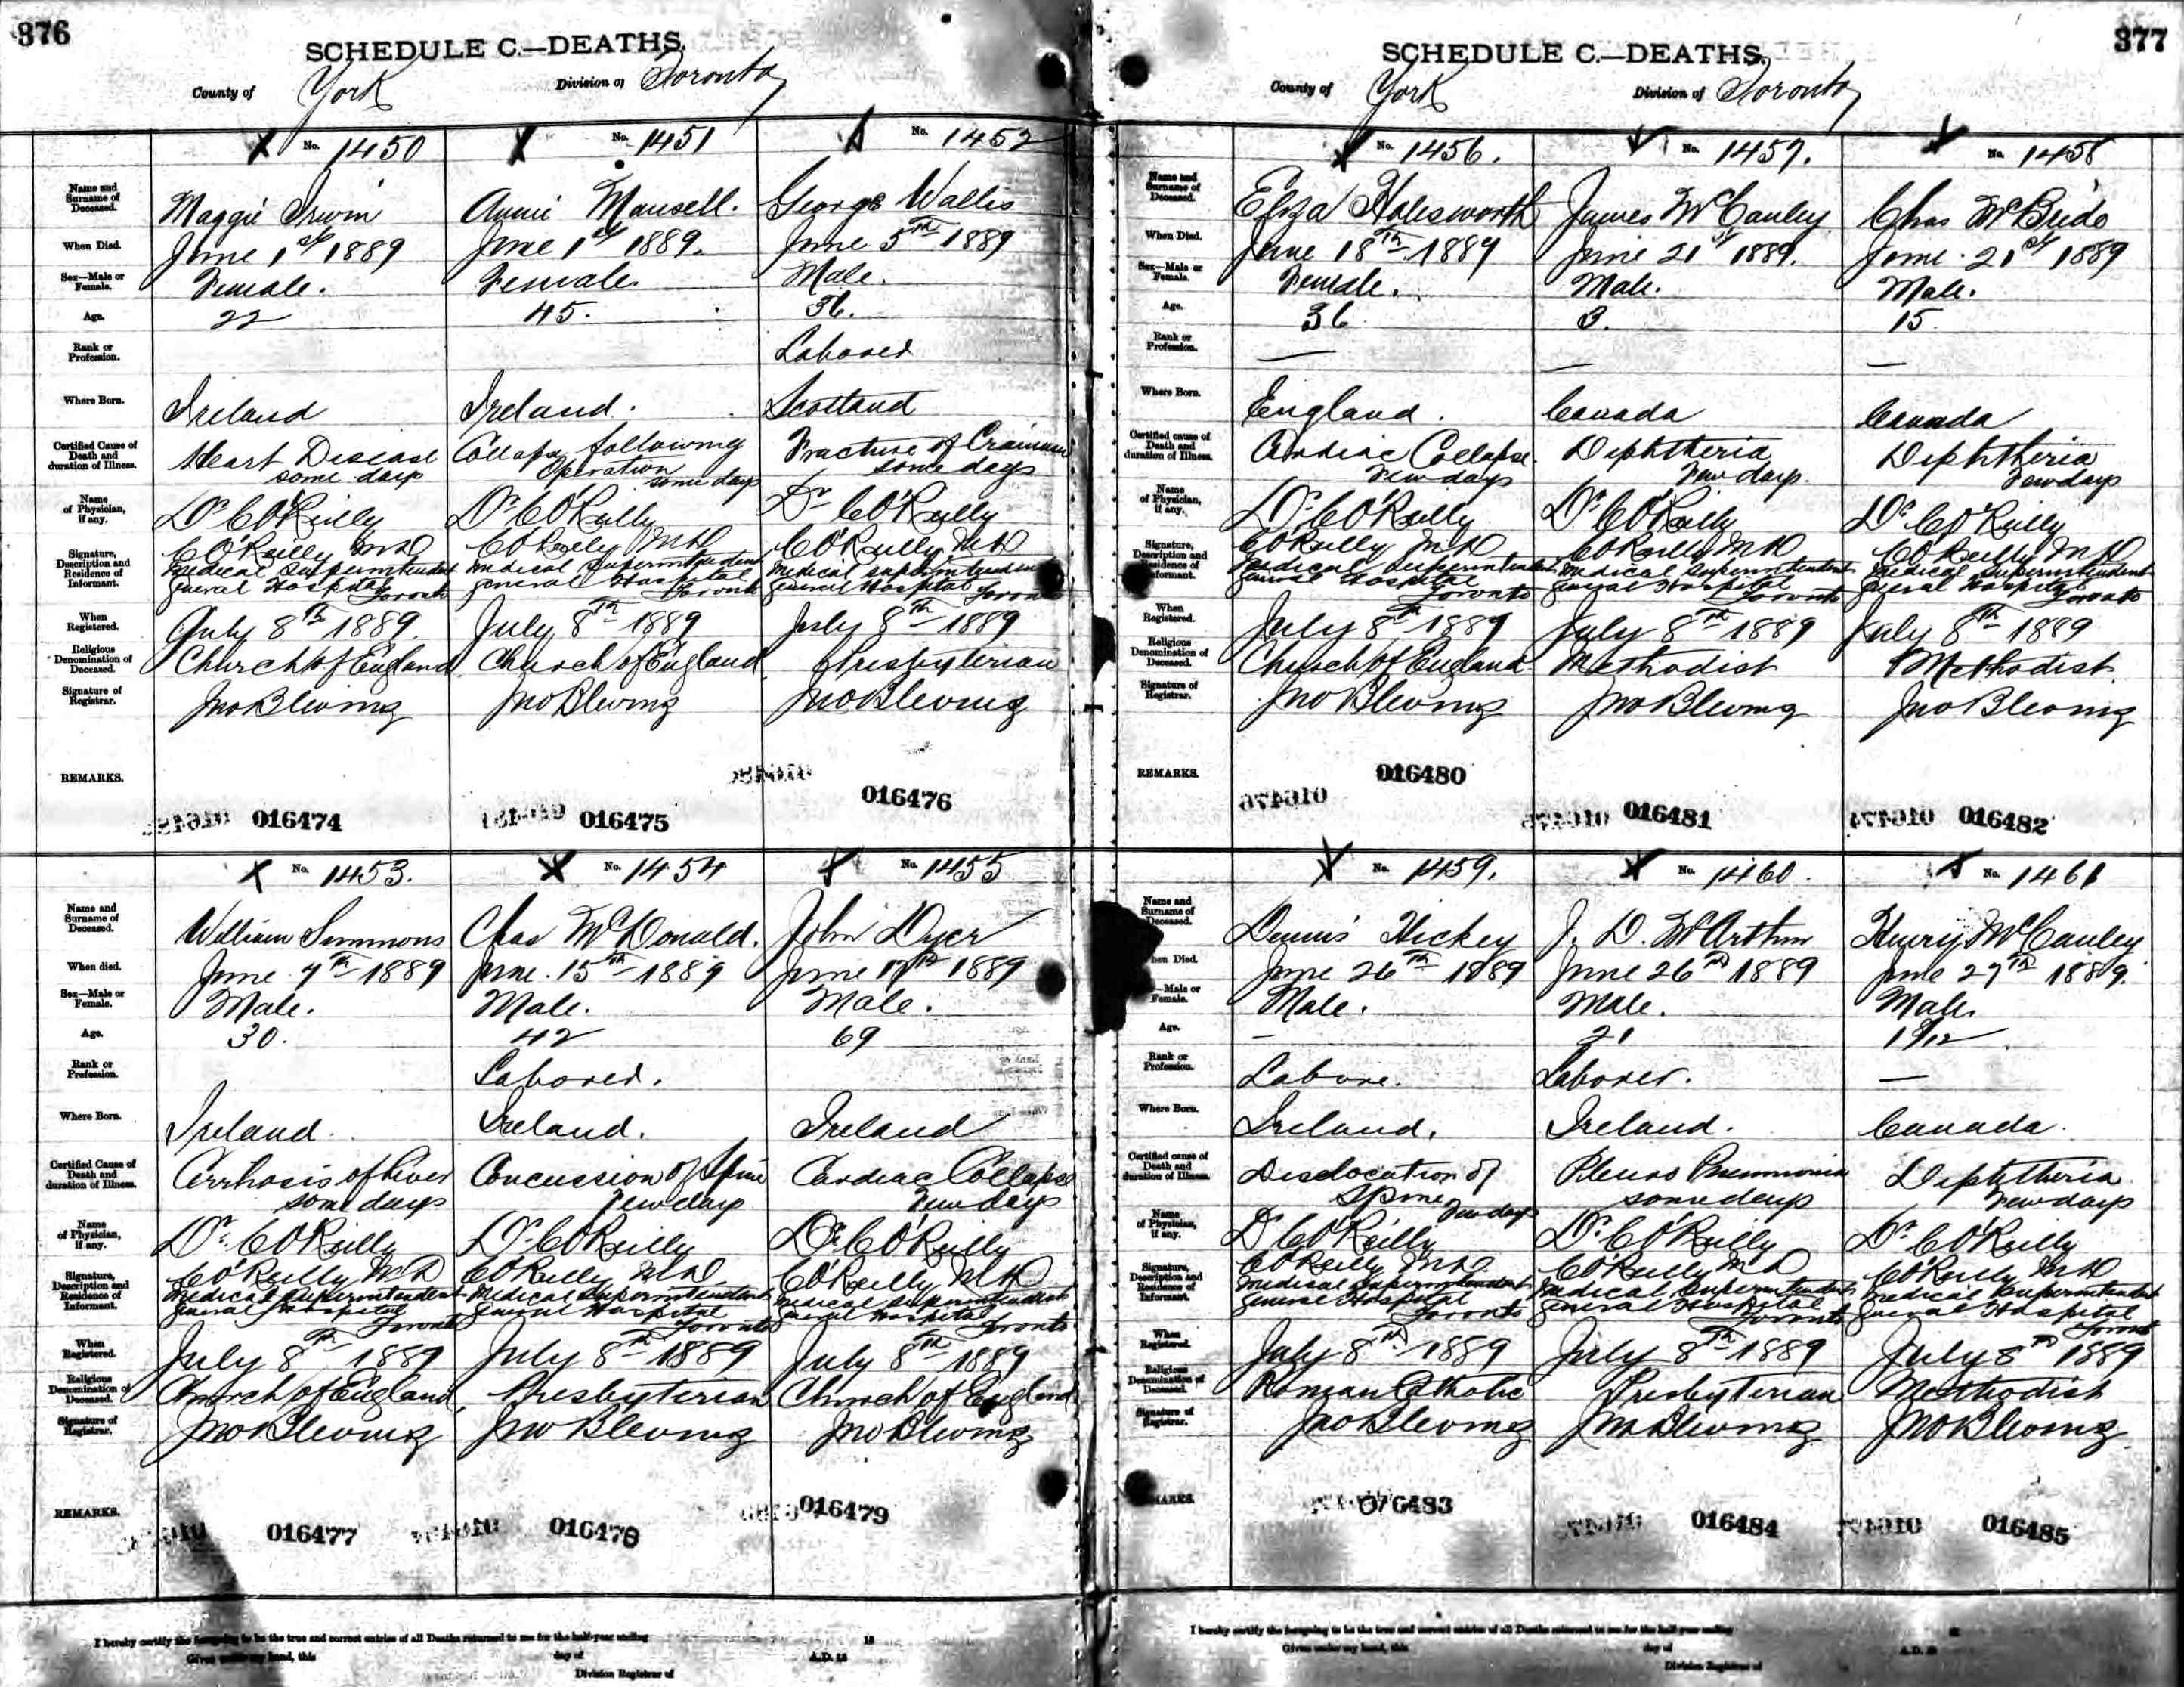 376
SCHEDULE C.—DEATHS.
County of York Division of Toronto
No. 1450 No. 1451 No. 1452
Name and Surname of Deceased. Maggie Irwin Annie Mansell. George Wallis
When Died. June 1st 1889 June 1st 1889. June 5th 1889
Sex—Male or Female. Female. Female Male.
Age. 22 45. 36.
Rank or Profession. Laborer
Where Born. Ireland Ireland. Scotland
Certified Cause of Death and duration of Illness. Heart Disease some days Collapse following Operation some days Fracture of Cranium some days
Name of Physician, if any. Dr C O'Reilly Dr C O'Reilly Dr C O'Reilly
Signature, Description and Residence of Informant. C O'Reilly MD Medical Superintendent General Hospital Toronto C O'Reilly MD Medical Superintendent General Hospital Toronto C O'Reilly MD Medical Superintendent General Hospital Toronto
When Registered. July 8th 1889. July 8th 1889 July 8th 1889
Religious Denomination of Deceased. Church of England Church of England Presbyterian
Signature of Registrar. Jno Blevins Jno Blevins Jno Blevins
REMARKS. 016474 016475 016476
No. 1453. No. 1454 No. 1455
Name and Surname of Deceased. William Simmons Chas McDonald. John Dyer
When died. June 7th 1889 June. 15th 1889 June 17th 1889
Sex—Male or Female. Male. Male. Male.
Age. 30. 42 69
Rank or Profession. Laborer.
Where Born. Ireland. Ireland. Ireland
Certified Cause of Death and duration of Illness. Cirrhosis of Liver some days Concussion of Spine Few days Cardiac Collapse Few days
Name of Physician, if any. Dr. C O'Reilly Dr. C O'Reilly Dr C O'Reilly
Signature, Description and Residence of Informant. C O'Reilly MD Medical Superintendent General Hospital Toronto C O'Reilly MD Medical Superintendent General Hospital Toronto C O'Reilly MD Medical Superintendent General Hospital Toronto
When Registered. July 8th 1889 July 8th 1889 July 8th 1889
Religious Denomination of Deceased. Church of England Presbyterian Church of England
Signature of Registrar. Jno Blevins Jno Blevins Jno Blevins
REMARKS. 016477 016478 016479
I hereby certify the foregoing to be the true and correct entries of all Deaths returned to me for the half-year ending 18
Given under my hand, this day of A.D. 18
Division Registrar of
377
SCHEDULE C.—DEATHS.
County of York Division of Toronto
No. 1456. No. 1457. No. 1458
Name and Surname of Deceased. Eliza Holesworth James McCauley Chas McBride
When Died. June 18th 1889 June 21st 1889. June 21st 1889
Sex—Male or Female. Female. Male. Male.
Age. 36 3. 15.
Rank or Profession. — — —
Where Born. England. Canada Canada
Certified cause of Death and duration of Illness. Cardiac Collapse. Few days Diphtheria Few days. Diphtheria Few days
Name of Physician, if any. Dr. C O'Reilly Dr C O'Reilly Dr C O'Reilly
Signature, Description and Residence of Informant. C O'Reilly MD Medical Superintendent General Hospital Toronto C O'Reilly MD Medical Superintendent General Hospital Toronto C O'Reilly MD Medical Superintendent General Hospital Toronto
When Registered. July 8th 1889 July 8th 1889 July 8th 1889
Religious Denomination of Deceased. Church of England Methodist Methodist.
Signature of Registrar. Jno Blevins Jno Blevins Jno Blevins
REMARKS. 016480 016481 016482
No. 1459. No. 1460. No. 1461
Name and Surname of Deceased. Dennis Hickey J. D. McArthur Henry McCauley
When Died. June 26th 1889 June 26th 1889 June 27th 1889.
Sex—Male or Female. Male. Male. Male.
Age. — 21 1 9/12
Rank or Profession. Labore. Laborer. —
Where Born. Ireland. Ireland. Canada.
Certified cause of Death and duration of Illness. Dislocation of Spine Few days Pleuro Pneumonia some days Diphtheria Few days
Name of Physician, if any. Dr C O'Reilly Dr. C O'Reilly Dr C O'Reilly
Signature, Description and Residence of Informant. C O'Reilly MD Medical Superintendent General Hospital Toronto C O'Reilly MD Medical Superintendent General Hospital Toronto C O'Reilly MD Medical Superintendent General Hospital Toronto
When Registered. July 8th 1889 July 8th 1889 July 8th 1889
Religious Denomination of Deceased. Roman Catholic Presbyterian Methodist
Signature of Registrar. Jno Blevins Jno Blevins Jno Blevins
REMARKS. 016483 016484 016485
I hereby certify the foregoing to be the true and correct entries of all Deaths returned to me for the half-year ending
Given under my hand, this day of A.D. 18
Division Registrar of